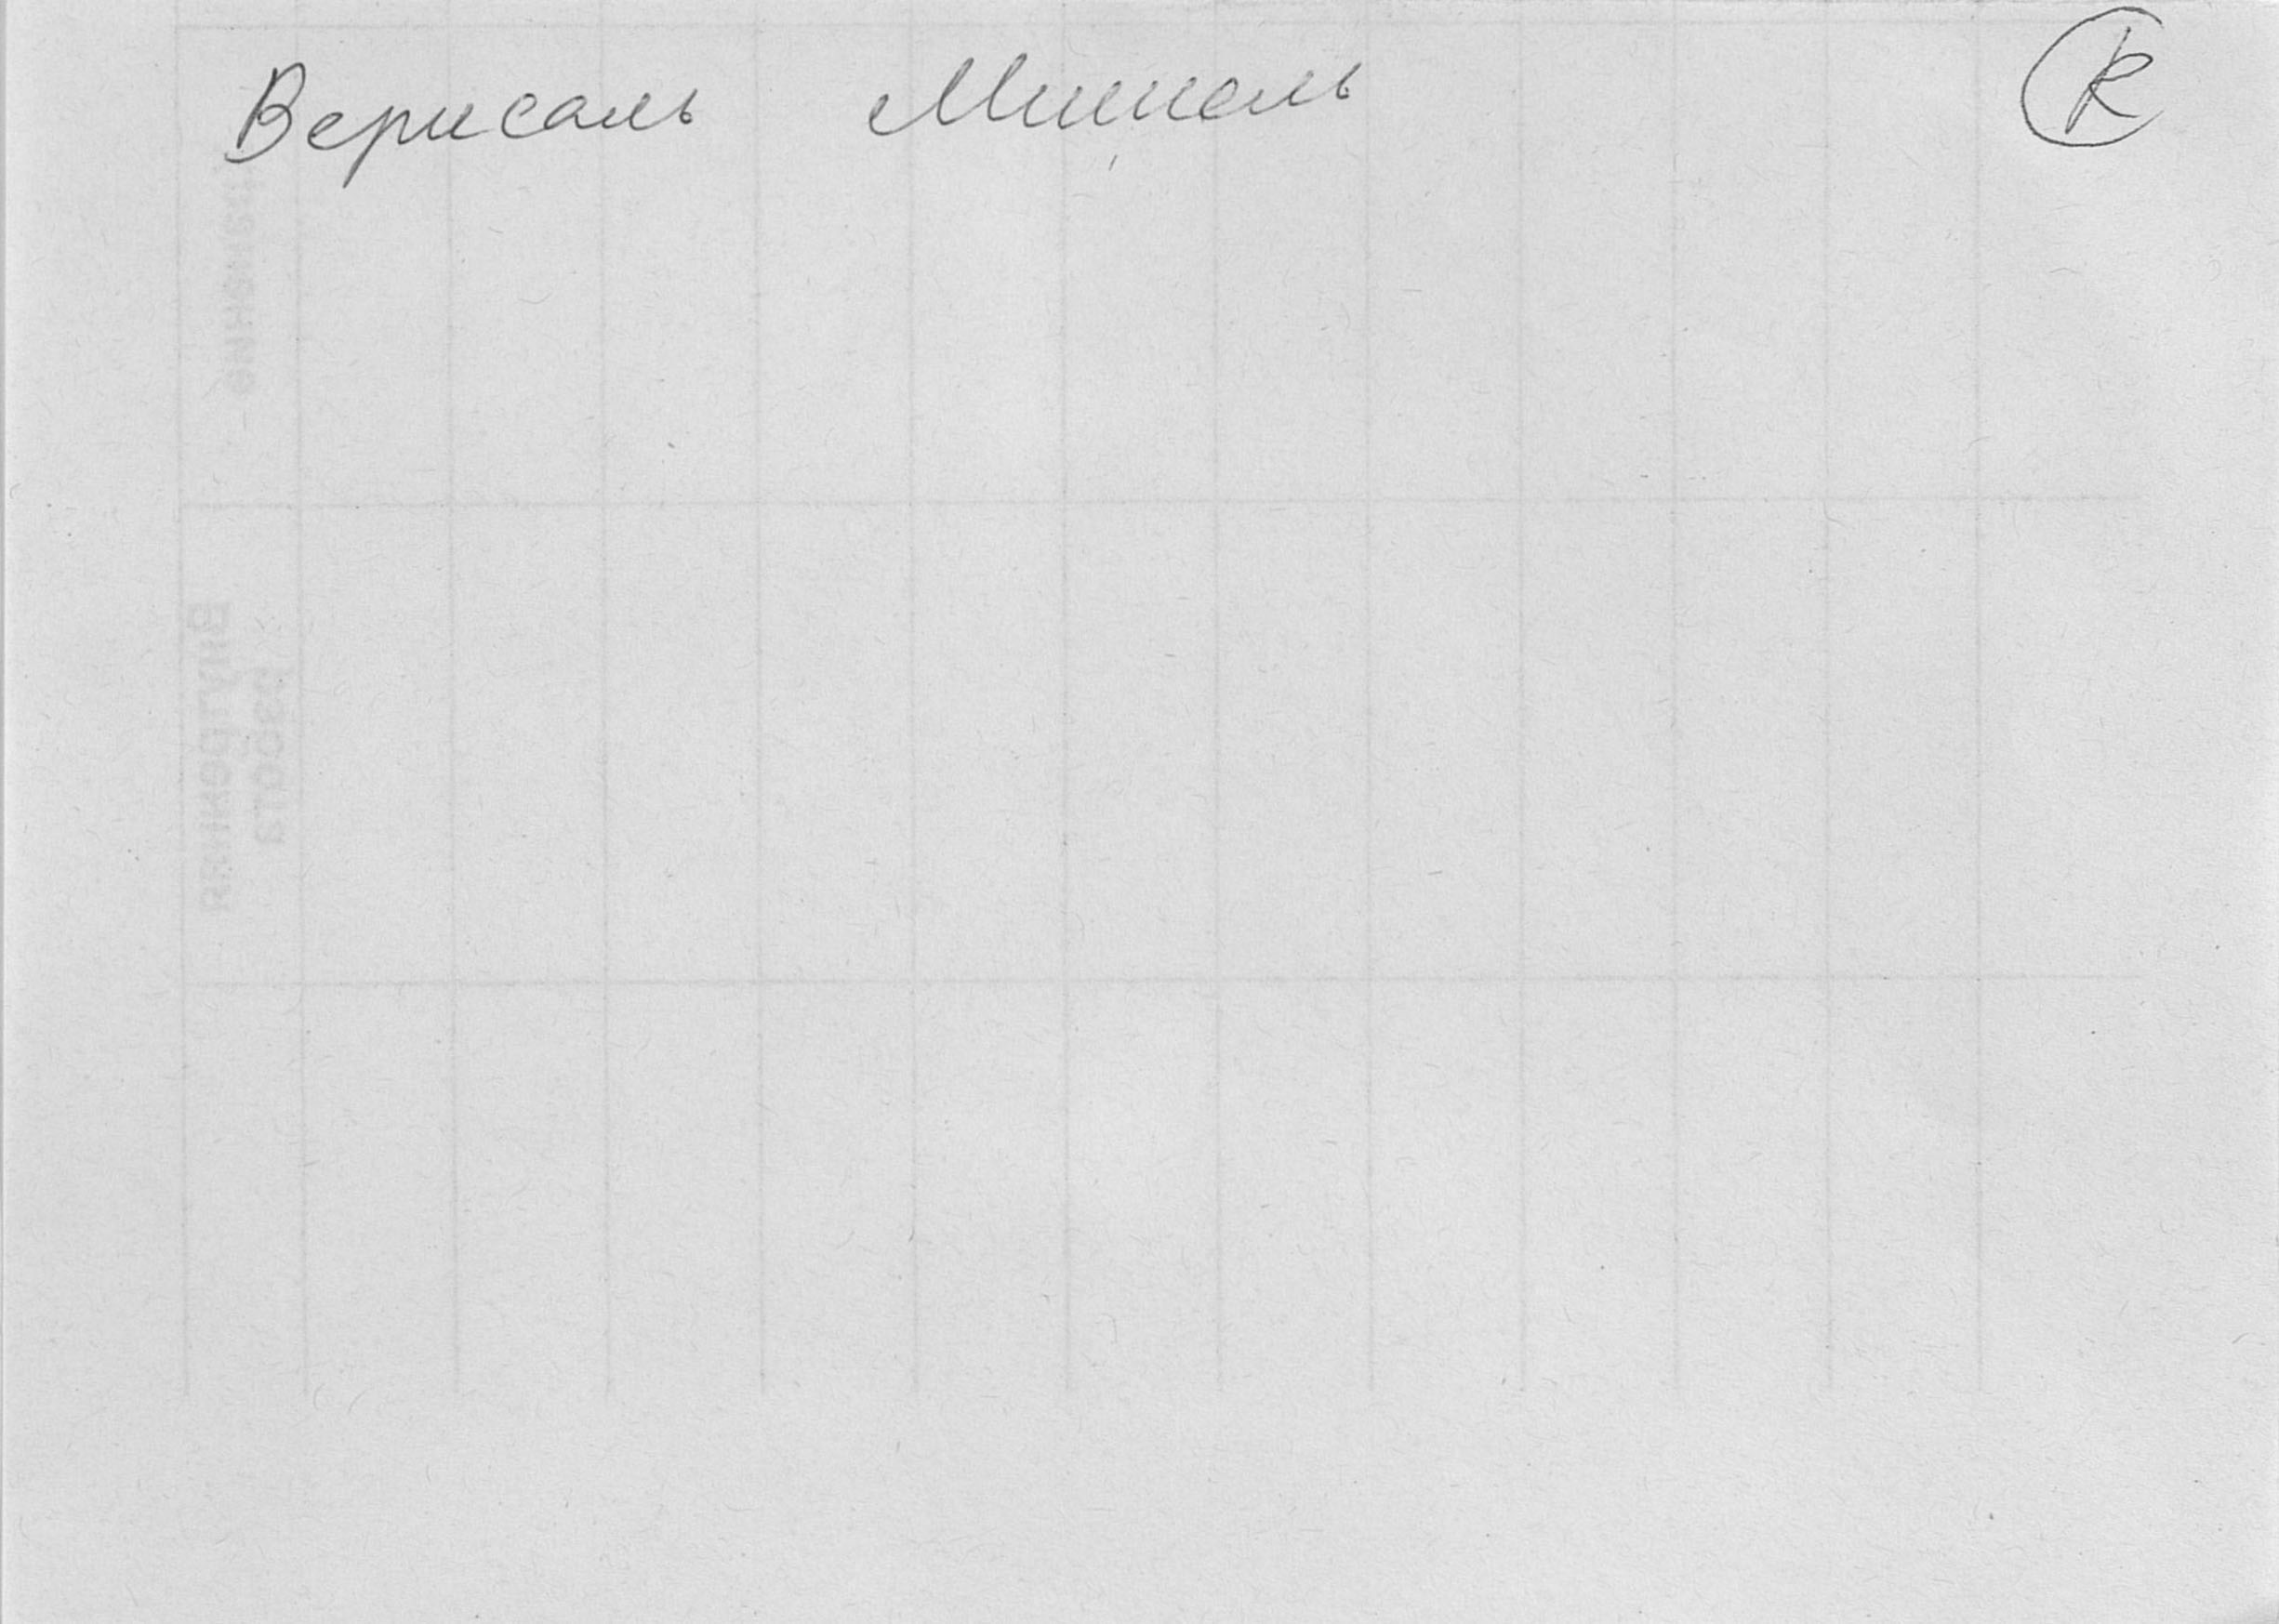 Верисаль Мишель R